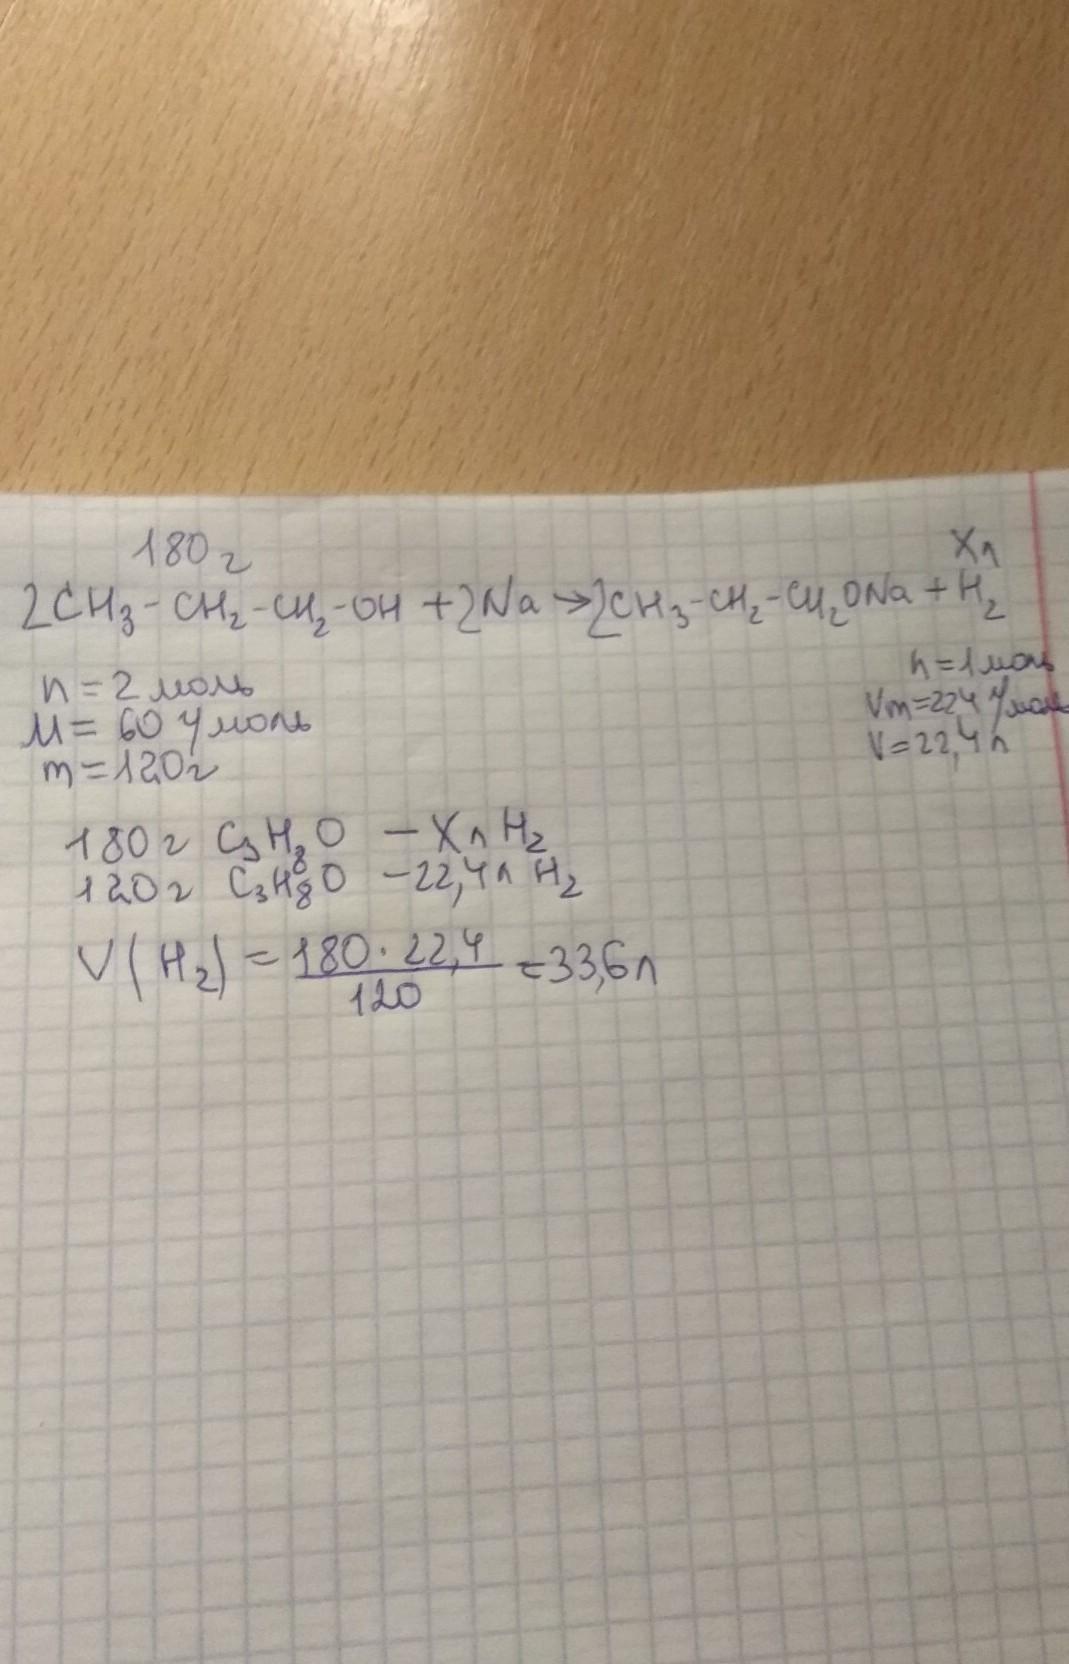 180 г
Xл
2CH₃-CH₂-CH₂-OH + 2Na → 2CH₃-CH₂-CH₂ONa + H₂
n = 2 моль
n = 1 моль
M = 60 г/моль
Vm = 22,4 л/моль
m = 120 г
V = 22,4 л
180 г C₃H₈O - Xл H₂
120 г C₃H₈O - 22,4 л H₂
V(H₂) = 180 · 22,4 / 120 = 33,6 л